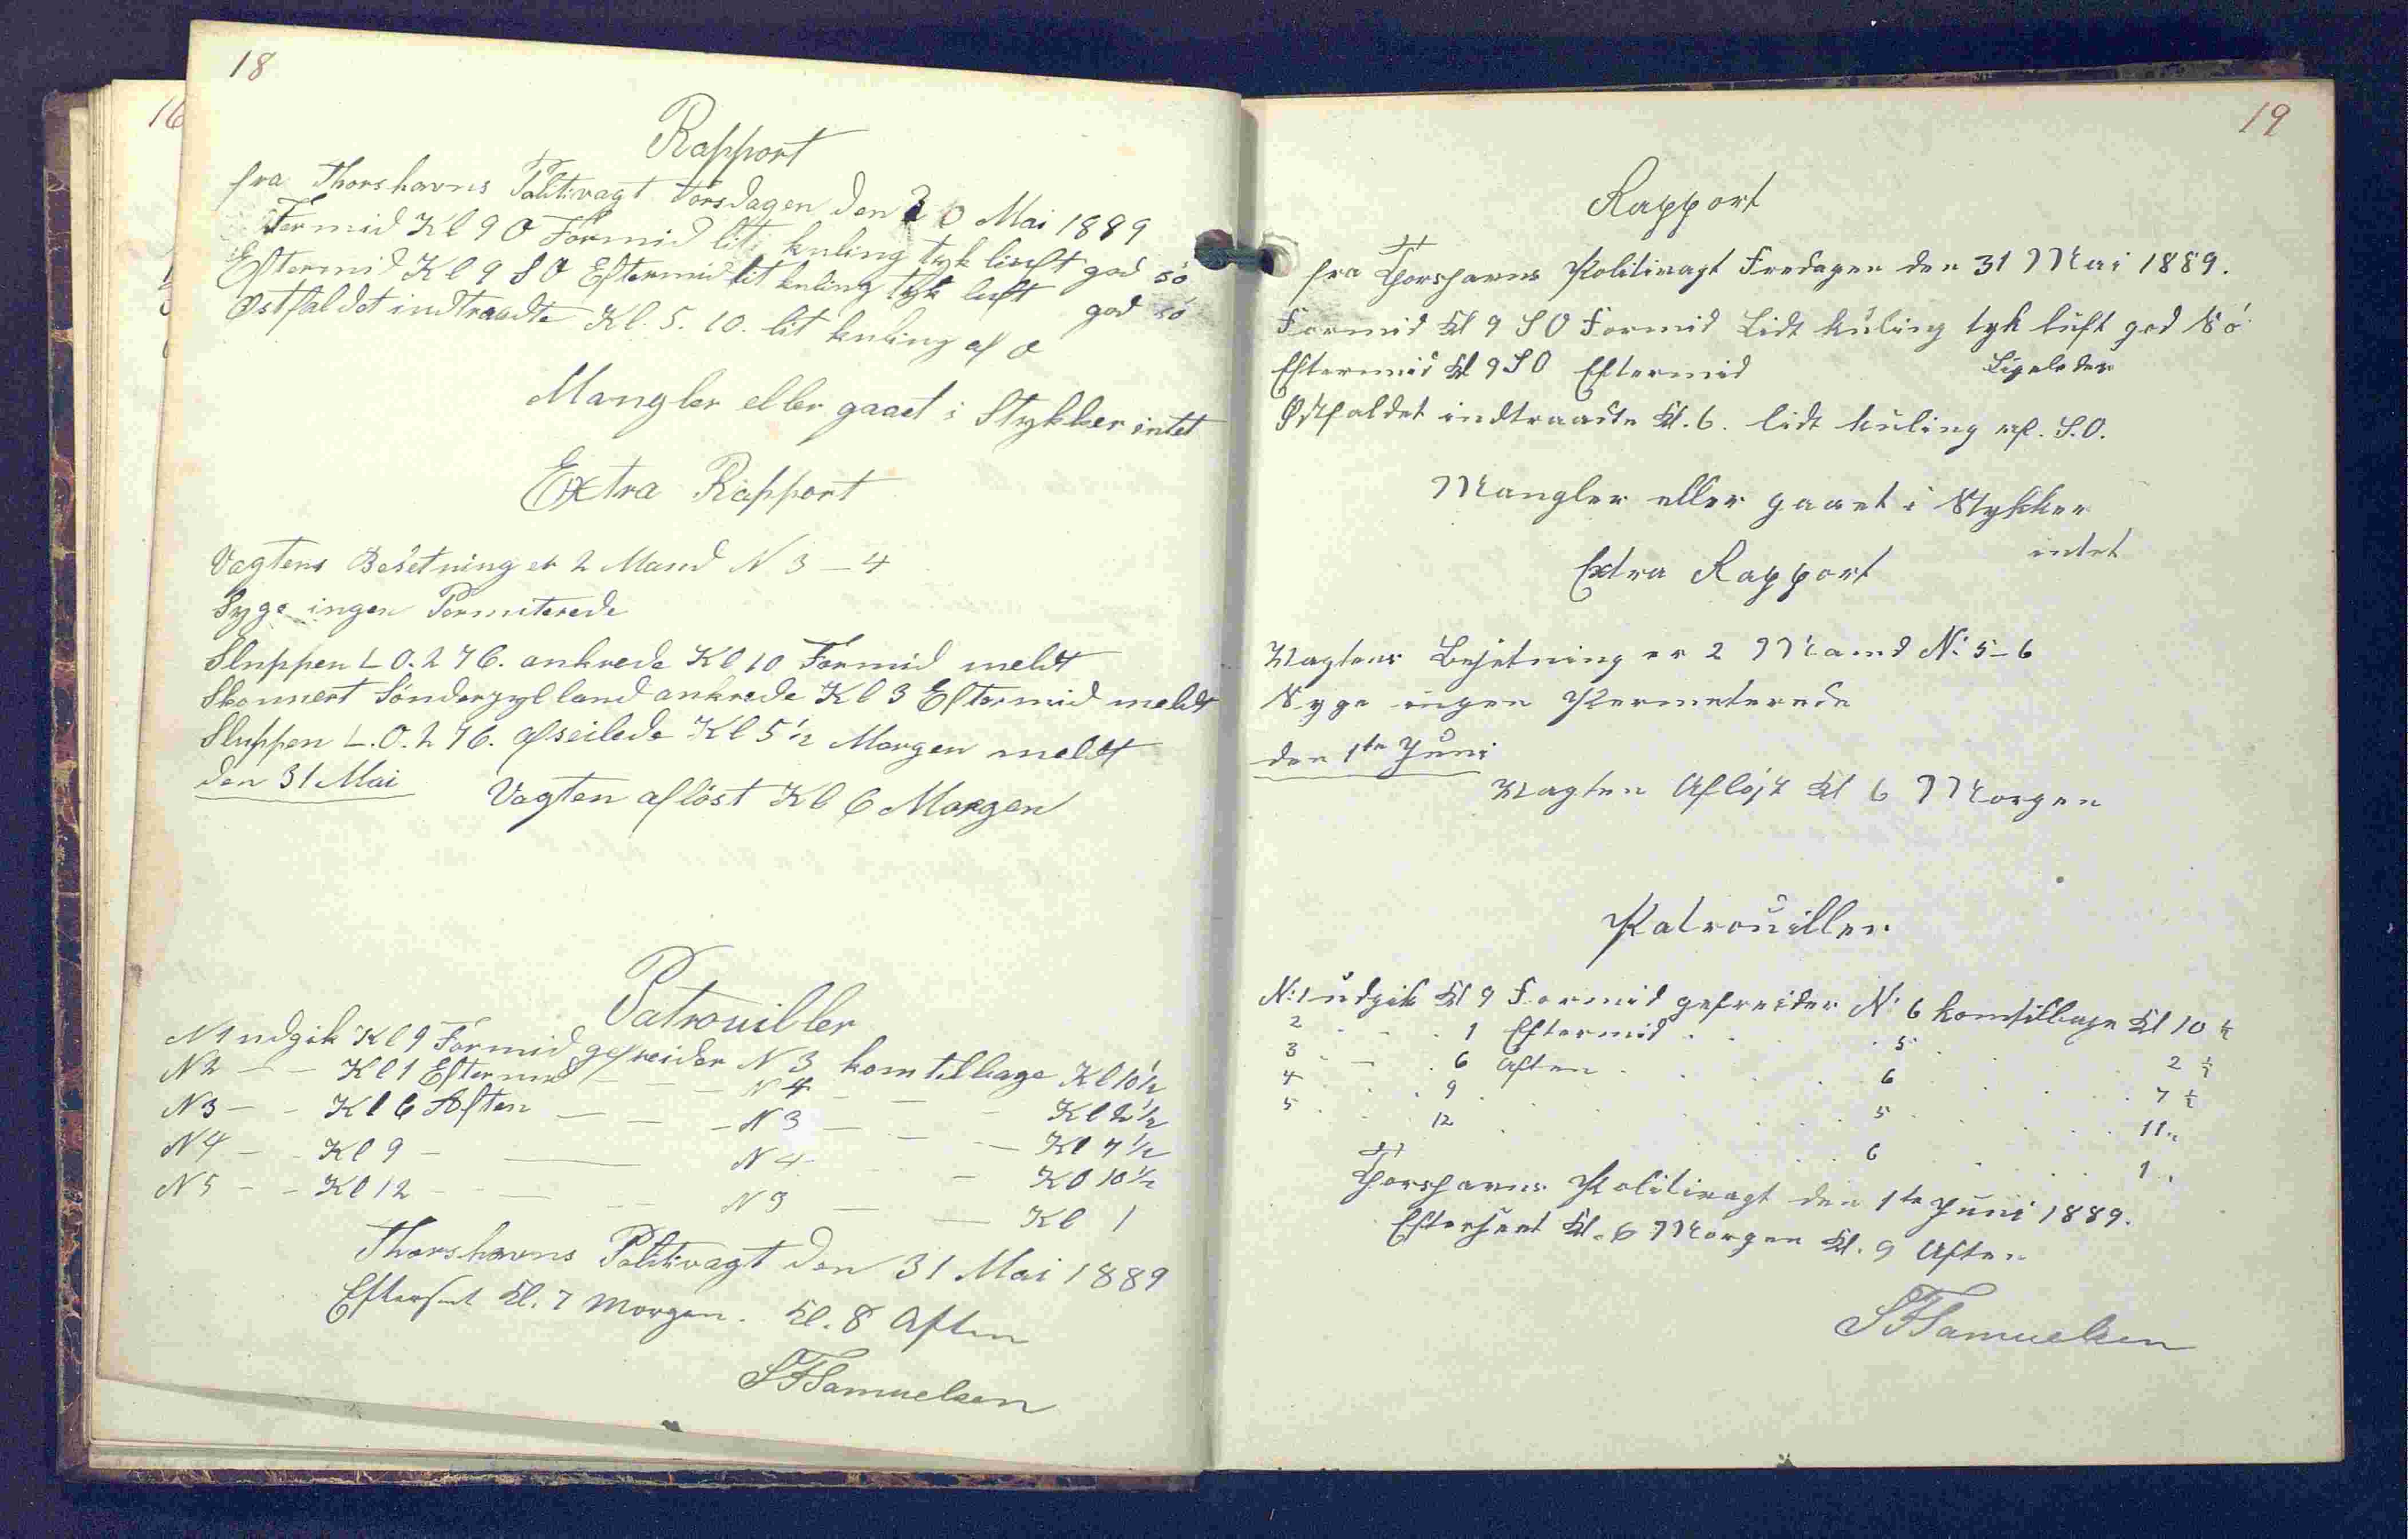 18
Rapport
fra Thorshavns Politivagt Torsdagen den 30 Mai 1889
Formid Kl 9 O Formid lit kuling tyk luft god sö
Eftermid Kl 9 SO Eftermid lit kuling tyk luft god sö
Østfaldet indtraadte Kl. 5. 10. lit kuling af O
Mangler eller gaaet i Stykker intet
Extra Rapport
Vagtens Besetning er 2 Mand N 3 – 4
Syge ingen Permiterede
Sluppen L O. 276. ankrede Kl 10 Formid meldt
Skonnert Sönderjylland ankrede Kl 3 Eftermid meldt
Sluppen L. O. 276. afseilede Kl 5 1/2 Morgen meldt
den 31 Mai
Vagten aflöst Kl 6 Morgen
Patrouiller
N 1 udgik Kl 9 Formid gefreider N 3 kom tilbage Kl 10 1/2
N 2 – – Kl 1 Eftermid – – – N 4 – – – Kl 2 1/2
N 3 – – Kl 6 Aften – – – N 3 – – – Kl 7 1/2
N 4 – – Kl 9 – – N 4 – Kl 10 1/2
N 5 – – Kl 12 – – – N 3 – – Kl 1
Thorshavns Politivagt den 31 Mai 1889
Efterseet Kl. 7 Morgen. Kl. 8 Aften
SFSamuelsen
16
19
Rapport
fra Thorshavns Politivagt Fredagen den 31 Mai 1889.
Formid Kl 9 SO Formid Lidt kuling tyk luft god Sö
Eftermid Kl 9 SO Eftermid Ligeledes
Østfaldet indtraadte Kl. 6. lidt kuling af. S.O.
Mangler eller gaaet i Stykker
intet
Extra Rapport
Vagtens Besetning er 2 Mand N: 5 – 6
Syge ingen Permeterede
den 1te Juni
Vagten Aflöst Kl 6 Morgen
Patrouiller
N: 1 udgik Kl 9 Formid gefreider N: 6 kom tilbage Kl 10 1/2
2 . . . 1 Eftermid . . . 5 . . 2 1/2
3 . – . 6 Aften . . . 6 . . 7 1/2
4 . . . 9 . . . 5 . . 11 "
5 . . . 12 . . . 6 . . 1 "
Thorshavns Politivagt den 1te Juni 1889.
Efterseet Kl. 6 Morgen Kl. 9 Aften
SFSamuelsen